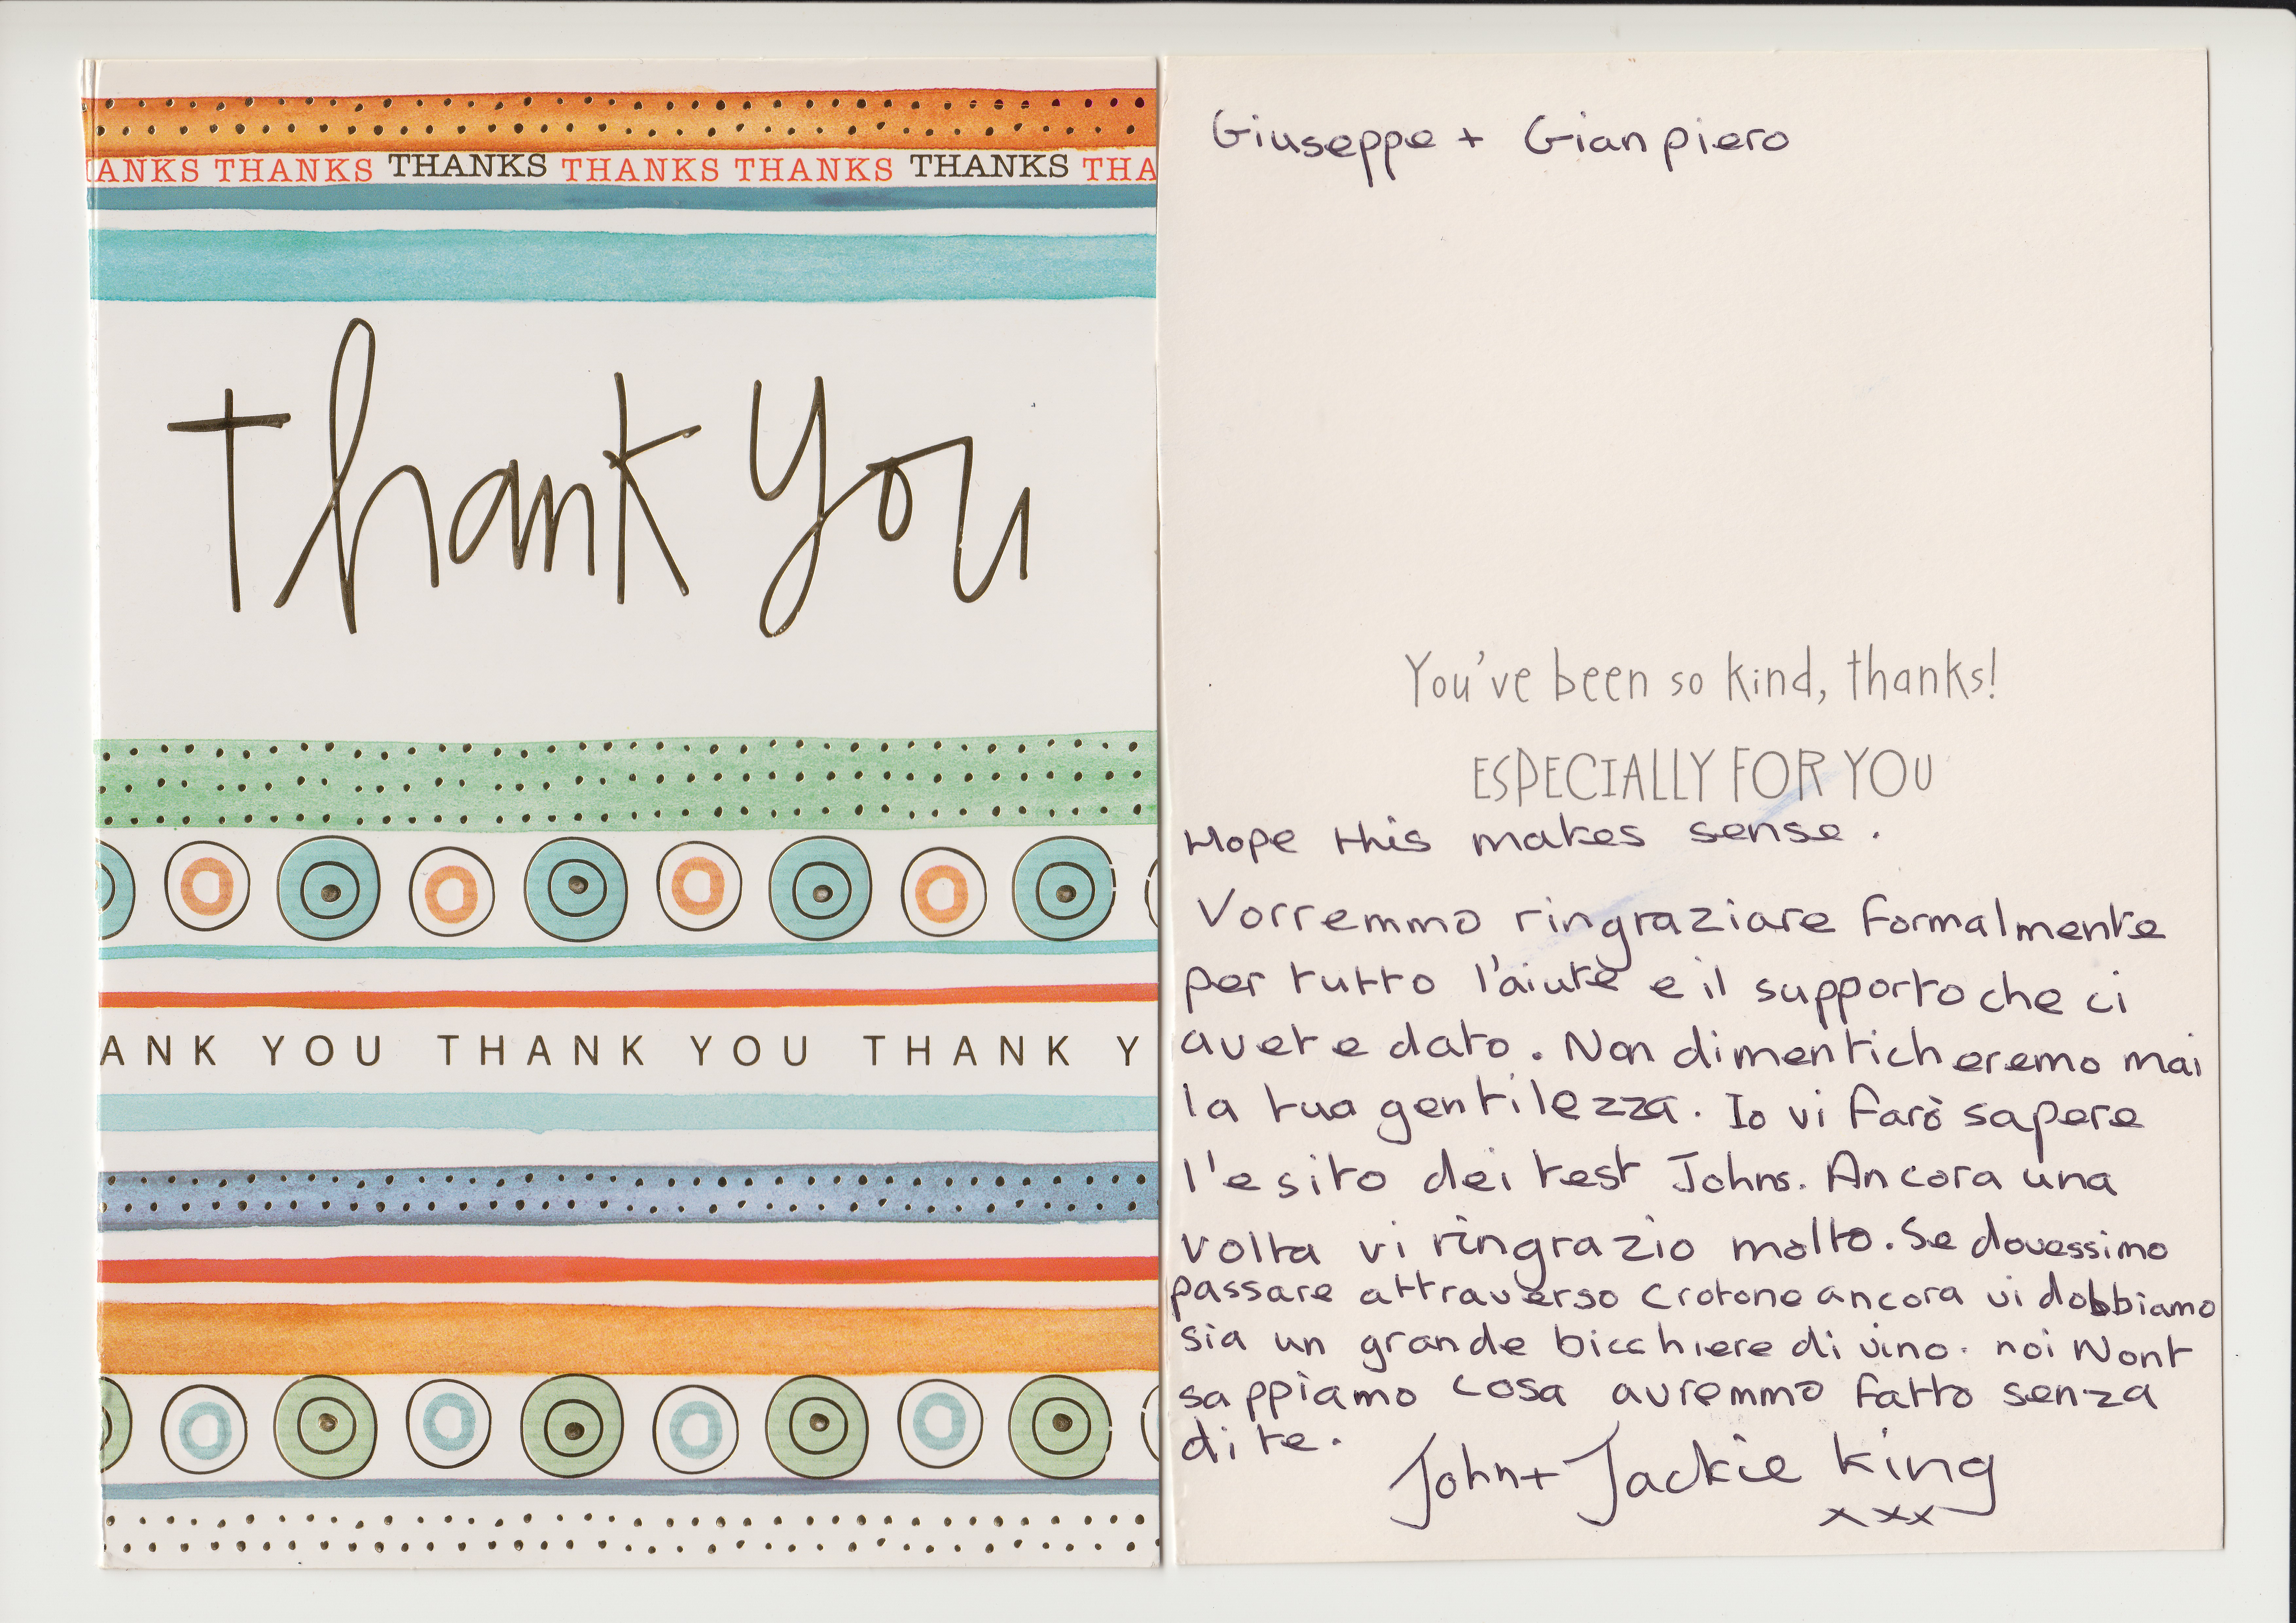 ANKS THANKS THANKS THANKS THANKS THANKS THA
thank you
ANK YOU THANK YOU THANK Y
Giuseppe + Gianpiero
You've been so kind, thanks!
ESPECIALLY FOR YOU
Hope this makes sense.
Vorremmo ringraziare formalmente
per tutto l'aiutè e il supporto che ci
avete dato. Non dimenticheremo mai
la tua gentilezza. Io vi farò sapere
l'esito dei test Johns. Ancora una
volta vi ringrazio molto. Se dovessimo
passare attraverso Crotone ancora vi dobbiamo
sia un grande bicchiere di vino. noi Nont
sappiamo cosa avremmo fatto senza
di te.
John + Jackie King
xxx